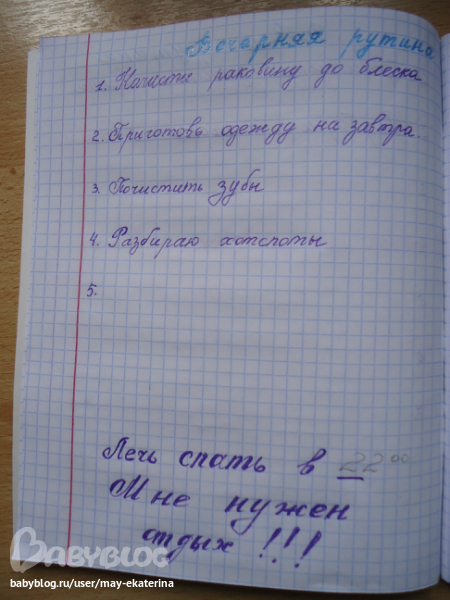 Вечерняя рутина
1. Начистить раковину до блеска
2. Приготовь одежду на завтра.
3. Почистить зубы
4. Разбираю хотспоты
5.
Лечь спать в 22⁰⁰
Мне нужен
отдых !!!
BABYBLOG
babyblog.ru/user/may-ekaterina